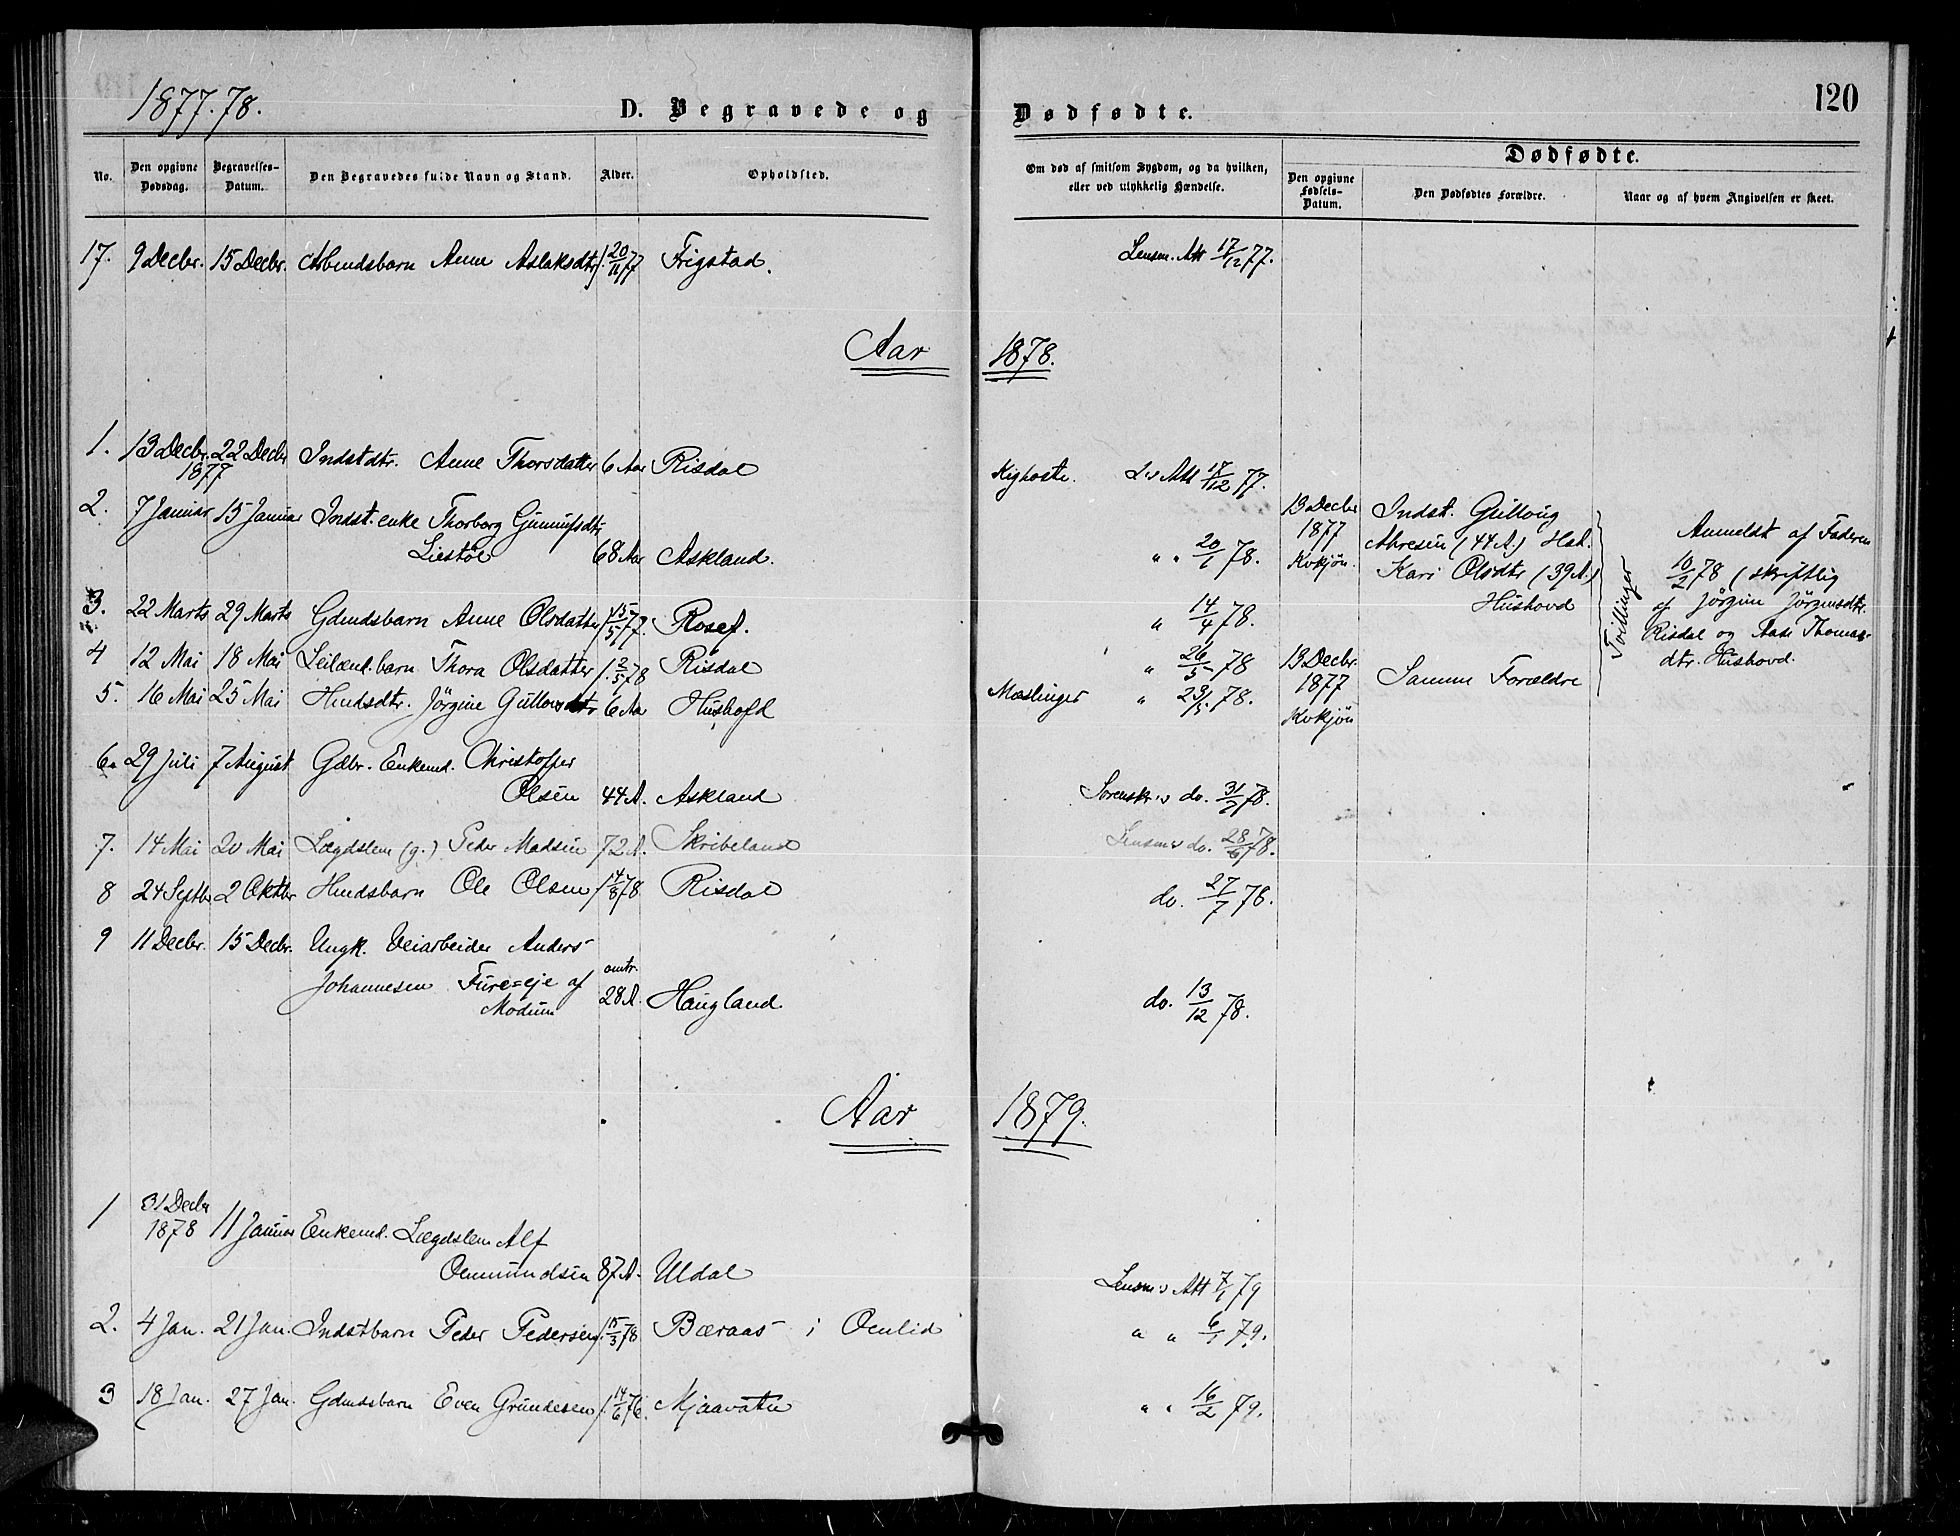 1877.78.
D. Begravede og Dødfødte.
120
No. Den opgivne Dødsdag. Begravelses-Datum. Den Begravedes fulde Navn og Stand. Alder. Opholdsted. Om død af smitsom Sygdom, og da hvilken, eller ved ulykkelig Hændelse. Dødfødte.
Den opgivne Fødsels-Datum. Den Dødfødtes Forældre. Naar og af hvem Angivelsen er skeet.
17. 9 Decbr. 15 Decbr. Arbmdsbarn Anne Aslaksdtr f. 20/11 77 Frigstad. Lensm. Att 17/12 77.
Aar 1878.
1. 13 Decbr. 1877 22 Decbr Indstdtr. Anne Thorsdatter 6 Aar Risdal Kighoste. L's Att 17/12 77.
2. 7 Januar 15 Januar Indst. enke Thorborg Gunnufsdtr
Liestøl 68 Aar Askland. " " 20/1 78.
3. 22 Marts 29 Marts Gdmdsbarn Anne Olsdatter f. 15/5 77. Rosef. " 14/4 78.
4 12 Mai 18 Mai Leilænd. barn Thora Olsdatter f. 2/5 78 Risdal " 26/5 78
5. 16 Mai 25 Mai Hmdsdtr. Jörgine Gullovsdtr 6 Aar Hushofd Mæslinger " 23/5 78.
6. 29 Juli 7 August Gdbr. Enkemd. Christoffer
Olsen 44 A. Askland Sorenskr's do. 31/7 78.
7. 14 Mai 20 Mai Lægdslem (g.) Peder Madsen 72 A. Skribeland Lensm's do. 28/6 78.
8 24 Septbr 2 Oktbr Hmdsbarn Ole Olsen f. 14/8 78. Risdal do. 27/7 78.
9 11 Decbr. 15 Decbr. Ungk. Veiarbeider Anders
Johannesen Fure=eje af
Modum omtr. 28 A. Haugland. do. 13/12 78.
13 Decbr 1877 Kvkjøn. Indst. Gullvug
Ahresen (44 A.) Hst.
Kari Olsdtr (39 A.)
Hushovd
13 Decbr. 1877 Kvkjøn Samme Forældre
Tvillinger
Anmeldt af Faderen
10/2 78 (skriftlig
af Jörgine Jörgensdtr.
Risdal og Aase Thomas-
dtr. Hushovd.
Aar 1879.
1 31 Decbr 1878 11 Januar Enkemd. Lægdslem Alf
Omundsen 87 A. Uldal Lensm's Att 7/1 79
2. 4 Jan. 21 Jan. Indstbarn Peder Pedersen f. 15/3 78 Bæraas i Omlid " " 6/1 79.
3 18 Jan. 27 Jan. Gdmdsbarn Even Grundesen f. 14/6 76. Mjaavatn " " 16/2 79.